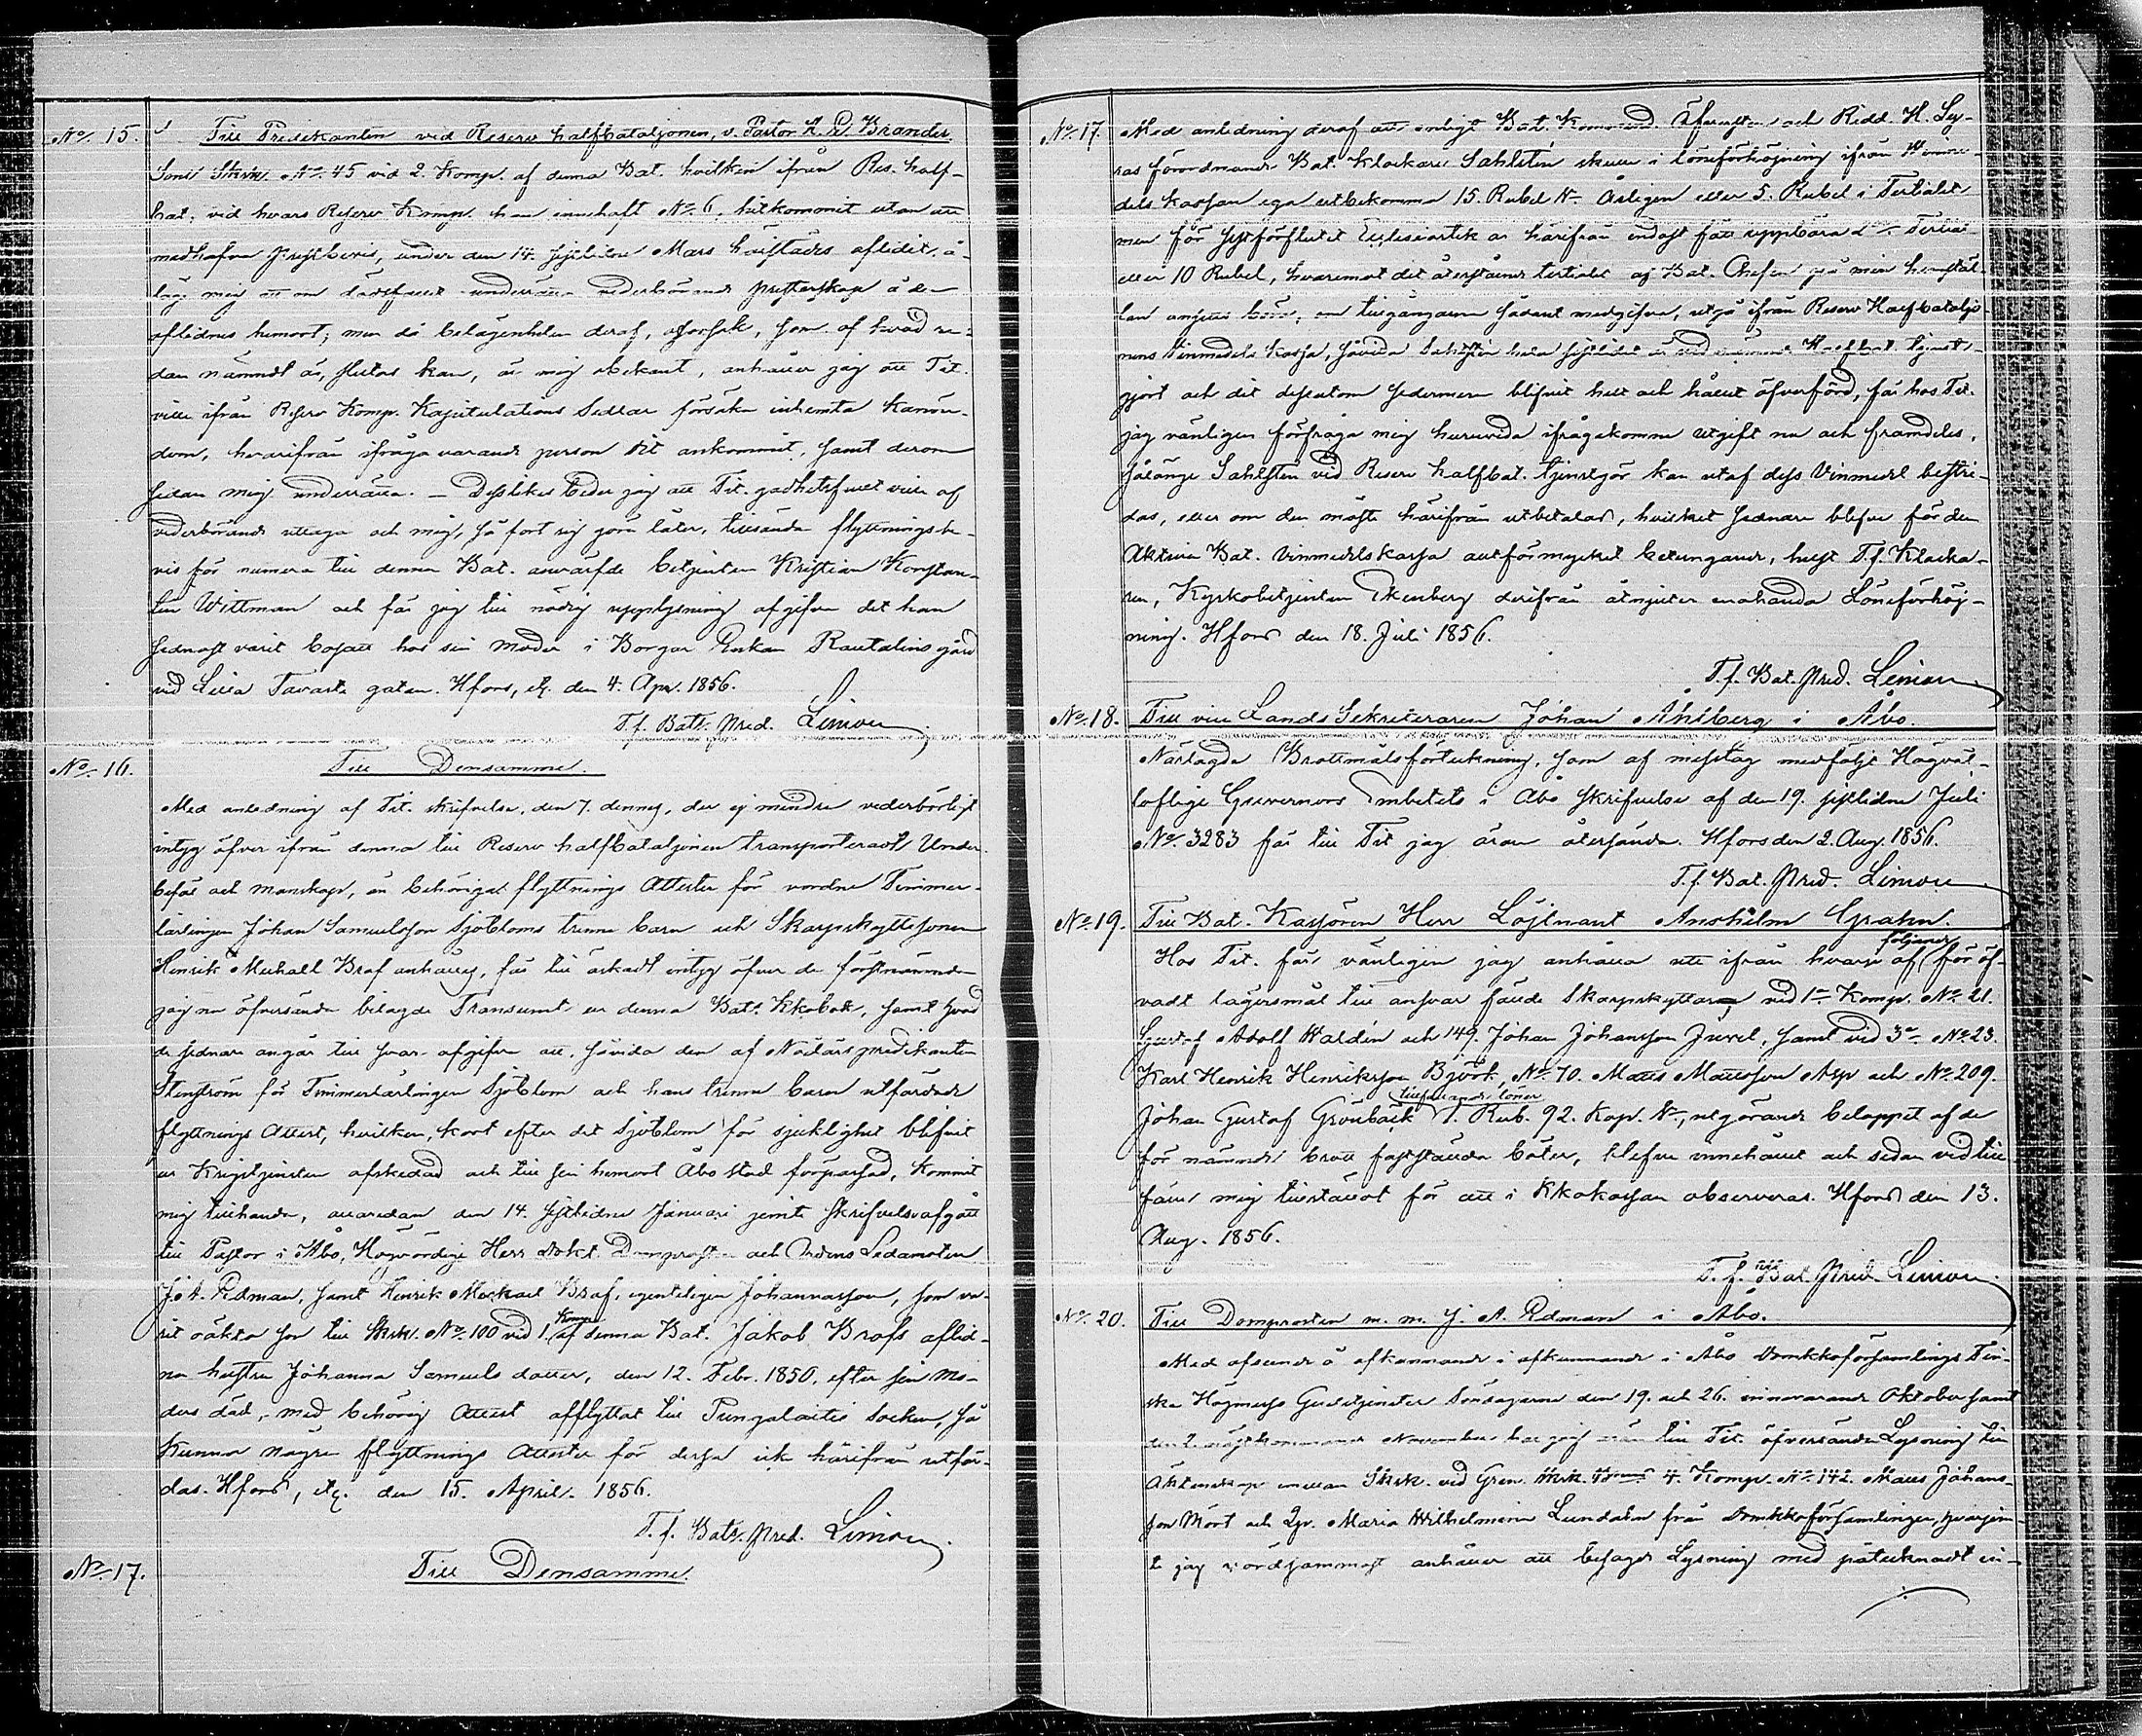 No. 15. Till Predikanten vid Reserv halfbataljonen, v. Pastor A. E. Brander.
Som Skrk. No. 45 vid 2. Komp. af denna Bat. hvilken ifrån Res. half-
bat. vid hvars Reserv Komp. han innehaft No. 6, hitkommit utan att
medhafva prestbevis, under den 14. sistlidne Mars härstädes aflidit, å-
ligg mig att om dödsfallet underrätta vederbörande presterskap å den
aflidnes hemort; men då belägenheten deraf, oforsk, som af hvad re-
dan nämndt är, slutas kan, är mig obekant, anhåller jag att Tit.
ville ifrån Reserv Komp. Kapitulations Sedlar försöka inhemta kännedom,
dom, hvarifrån ifråga varande person dit ankommit, samt derom
sedan mig underrätta. — Desslikes beder jag att Tit. godhetsfullt ville af
vederbörande uttaga och mig, så fort sig göra låter, tillsända flyttningsbe-
vis för numera till denna Bat. anvärfde betjenten Kristian Konstan-
tin Wittman och får jag till nödig upplysning afgifva det han
sednast varit bosatt hos sin moder i Borgar Enkan Rautalins gård
vid Lilla Tavaste gatan. Hfors, etc. den 4. Apr. 1856.
T. f. Bats. Pred. Limon
No. 16. Till Densamme.
Med anledning af Tit. skrifvelse, den 7. dennes, der ej mindre vederbörligt
intyg öfver ifrån denna till Reserv halfbataljonen transporteradt Under-
befäl och manskap, än behöriga flyttnings Attester för vordne Timmer-
lärlingen Johan Samuelsson Sjöbloms trenne barn och Skarpskyttesonen
Henrik Michael Braf anhålles, får till äskadt intyg öfver de förstnämnde
jag nu öfversända bilagde Transumt ur denna Bats. Kkobok, samt hvad
de sednare angår till svar afgifva att, såvida den af Nödårspredikanten
Stenström för Timmerlärlingen Sjöblom och hans trenne barn utfärdade
flyttnings Attest, hvilken, kort efter det Sjöblom för sjuklighet blifvit
ur Krigstjensten afskedad och till sin hemort Åbo stad förpassad, kommit
mig tillhanda, allaredan den 14. sistlidne Januari jemte skrifvelse afgått
till Pastor i Åbo, Högvördige Herr Dokt. Domprosten och Ordens Ledamoten
J. A. Edman, samt Henrik Mickael Braf, egenteligen Johannasson, som va-
rit oäkta son till Skrk. No. 100 vid 1. Komp. af denna Bat. Jakob Brafs aflid-
na hustru Johanna Samuels dotter, den 12. Febr. 1850, efter sin mo-
ders död, med behörig Attest afflyttat till Pungalaitio Socken, så
kunna några flyttnings Attester för dessa icke härifrån utfär-
das. Hfors, etc. den 15. April. 1856.
T. f. Bats. Pred. Limon
No. 17. Till Densamme.
No. 17. Med anledning deraf att enligt Bat. Kommend. Öfversten och Ridd. H. Sey-
ras förordnande Bat. Klockare Sahlsten skulle i löneförhöjning ifrån Vinme-
dels kassan ega utbekomma 15. Rubel Sr årligen eller 5. Rubel i Tertialet
men för sistförflutet Ecclesiastik år härifrån endast fått uppbära 2ne Tertial
eller 10 Rubel, hvaremot det återstående tertialet af Bat. Chefen på min hemstäl-
lan ansetts böra, om tillgångarne sådant medgifva, utgå ifrån Reserv Halfbataljo-
nens Vinmedels Kassa, såvida Sahlsten hela sistlidet år vid nämnde Halfbat. tjenst-
gjort och dit dessutom sedermera blifvit helt och hållet öfverförd, får hos Tit.
jag vänligen förfråga mig huruvida ifrågakomne utgift nu och framdeles,
sålänge Sahlsten vid Reserv halfbat. tjenstgör kan utaf dess Vinmedel bestri-
das, eller om den måste härifrån utbetalas, hvilket sednare blefve för den
Aktiva Bat. Vinmedelskassa alltförmycket betungande, helst T. f. Klocka-
ren, Kyrkobetjenten Ekenberg derifrån åtnjuter enahanda Löneförhöj-
ning. Hfors den 18. Juli 1856.
T. f. Bat. Pred. Limon
No. 18. Till vice Lands Sekreteraren Johan Ahlberg i Åbo.
Närlagda Brottmålsförteckning, som af misstag medföljt Högväl-
loflige Guvernörs Embetets i Åbo skrifvelse af den 19. sistlidne Juli
No. 3283 får till Tit jag äran återsända. Hfors den 2. Aug. 1856.
T. f. Bat. Pred. Limon
No. 19. Till Bat. Kassören Herr Löjtnant Anshelm Grahn
Hos Tit. får vänligen jag anhålla att ifrån hvarje af följande för öf-
vadt lägersmål till ansvar fälde Skarpskyttar, vid 1a Komp. No. 21.
Gustaf Adolf Waldén och 149. Johan Johansson Juvel, samt vid 3e No. 23.
Karl Henrik Henriksson Björk, No. 70. Matts Mattsson Asp och No. 209.
Johan Gustaf Grönbäck tillfallande löner 1. Rub. 92. Kop. Sr, utgörande beloppet af de
för nämnde brott fastställda böter, blefve innehållet och sedan vid till-
fälle mig tillställdt för att i Kkokassan observeras. Hfors den 13.
Aug. 1856.
T. f. Bat. Pred. Limon
No. 20. Till Domprosten m. m. J. A. Edman i Åbo.
Med afseende å afkunnande i afkunnande i Åbo Domkkoförsamlings Fin-
ska Högmesso Gudstjenster Söndagarne den 19. och 26. innevarande Oktober samt
den 2. nästkommande November har jag äran till Tit. öfversända Lysning till
Äktenskap emellan Skrk. vid Gren. 4. Komp. No. 142. Matts Johans-
son Mört och Pgn. Maria Wilhelmina Lundalin från Domkkoförsamlingen, hvarjem-
te jag vördsammast anhåller att besagde Lysning med påtecknadt in-